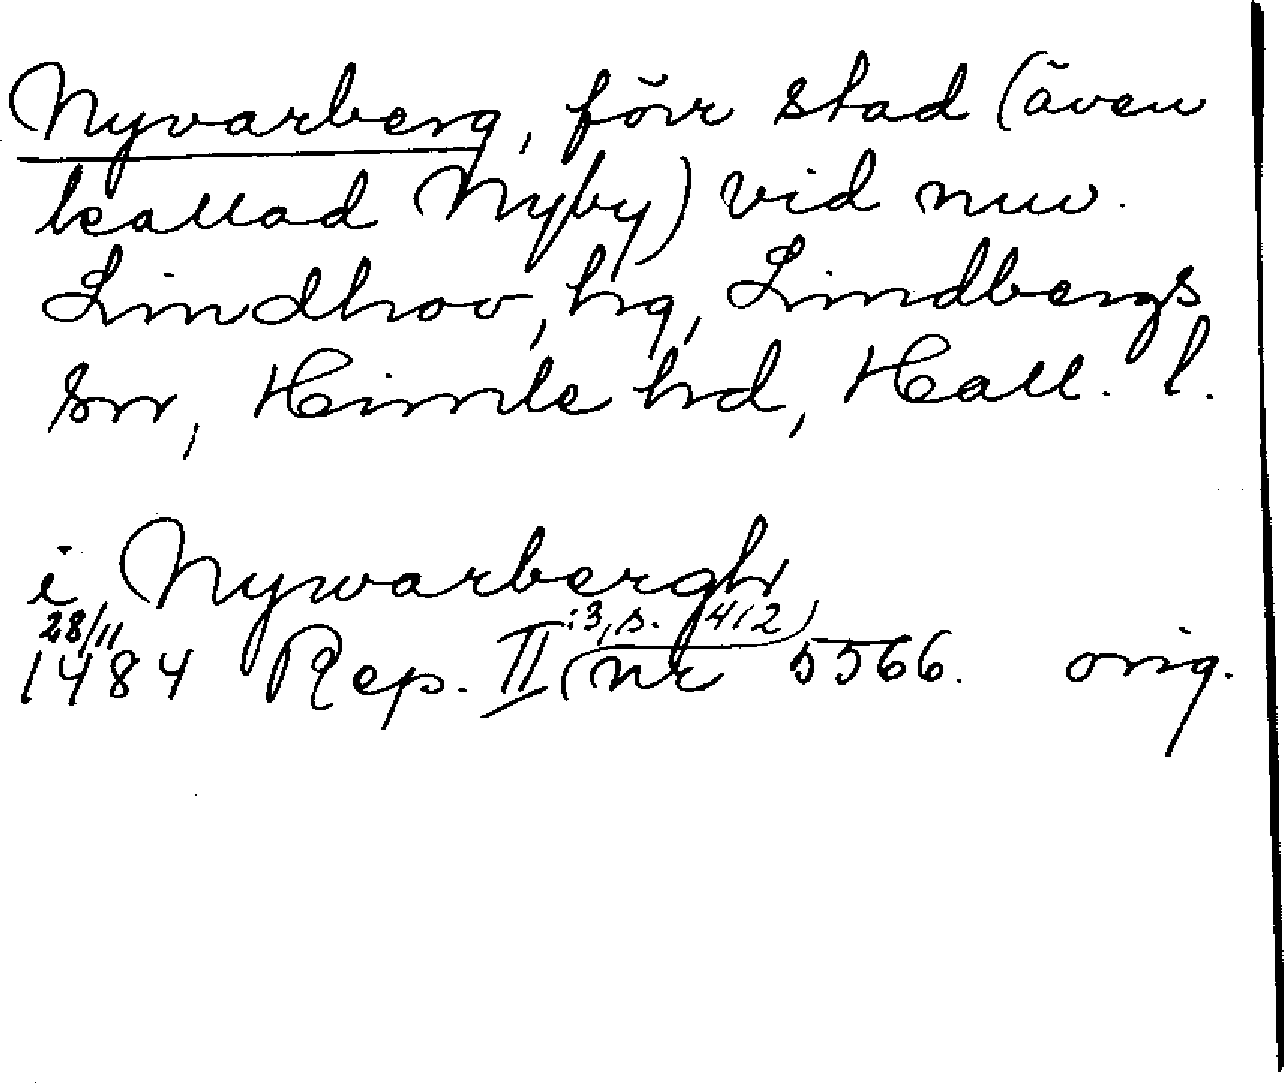 Nyvarberg, förr stad (även
kallad Nyby) vid nuv.
Lindhov, hg, Lindbergs
sn, Himle hd, Hall. l.
i Nywarbergh
28/11
1484 Rep. II:3, s. 412 (nr 5566. orig.